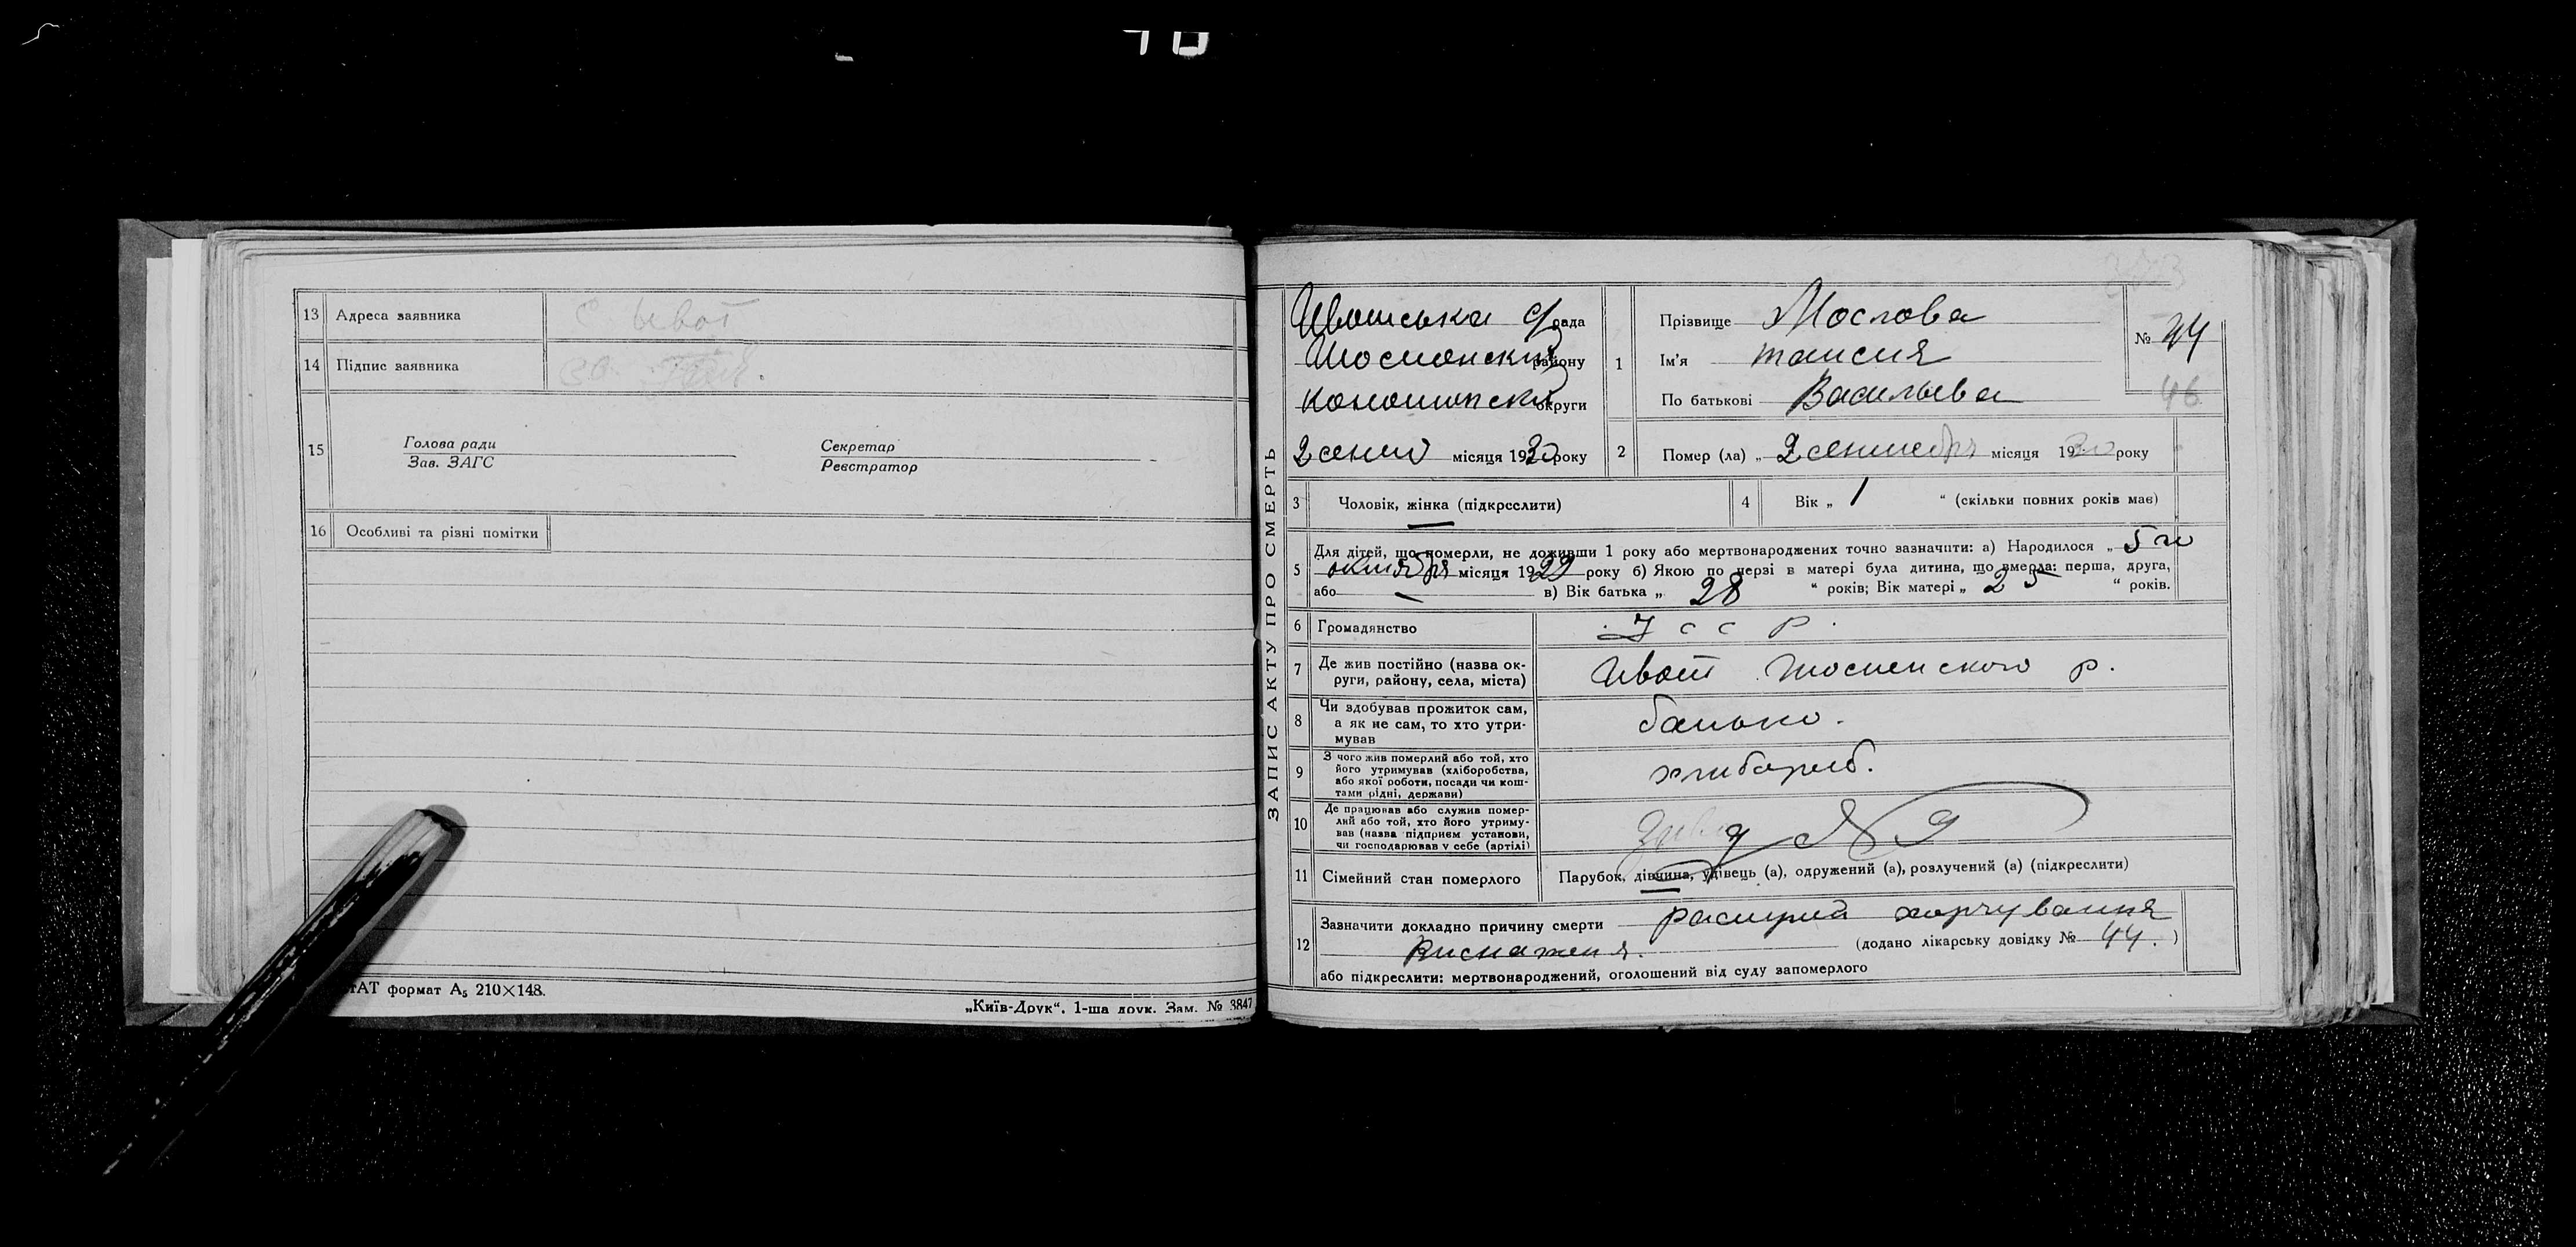 13 Адреса заявника с Ивот
14 Підпис заявника
15 Голова ради
Зав. ЗАГС
Секретар
Реєстратор
16 Особливі та різні помітки
ТАТ формат А5 210×148.
„Київ-Друк“. 1-ша друк. Зам. № 3847
ЗАПИС АКТУ ПРО СМЕРТЬ
Ивотська с/рада
району
округи
2 сент місяця 1930 року
1 Прізвище Мослова
Ім’я таисия
По батькові Васильева
№ 44
46
2 Помер (ла) „ 2 сентебря місяця 1930 року
3 Чоловік, жінка (підкреслити)
4 Вік „ 1 “ (скільки повних років має)
5 Для дітей, що померли, не доживши 1 року або мертвонароджених точно зазначити: а) Народилося „ 5 го
октября місяця 1929 року б) Якою по черзі в матері була дитина, що вмерла: перша, друга,
або — в) Вік батька „ 28 “ років; Вік матері „ 25 “ років.
6 Громадянство УССР.
7 Де жив постійно (назва округи, району, села, міста) Ивот р.
8 Чи здобував прожиток сам,
а як не сам, то хто утри-
мував батько.
9 З чого жив померлий або той, хто
його утримував (хліборобства,
або якої роботи, посади чи кош-
тами рідні, держави) хлибороб.
10 Де працював або служив помер-
лий або той, хто його утриму-
вав (назва підприєм установи,
чи господарював у себе (артілі)
11 Сімейний стан померлого Парубок, дівчина, удівець (а), одружений (а), розлучений (а) (підкреслити)
12 Зазначити докладно причину смерти харчування
виснаженя. (додано лікарську довідку № 44.)
або підкреслити: мертвонароджений, оголошений від суду запомерлого